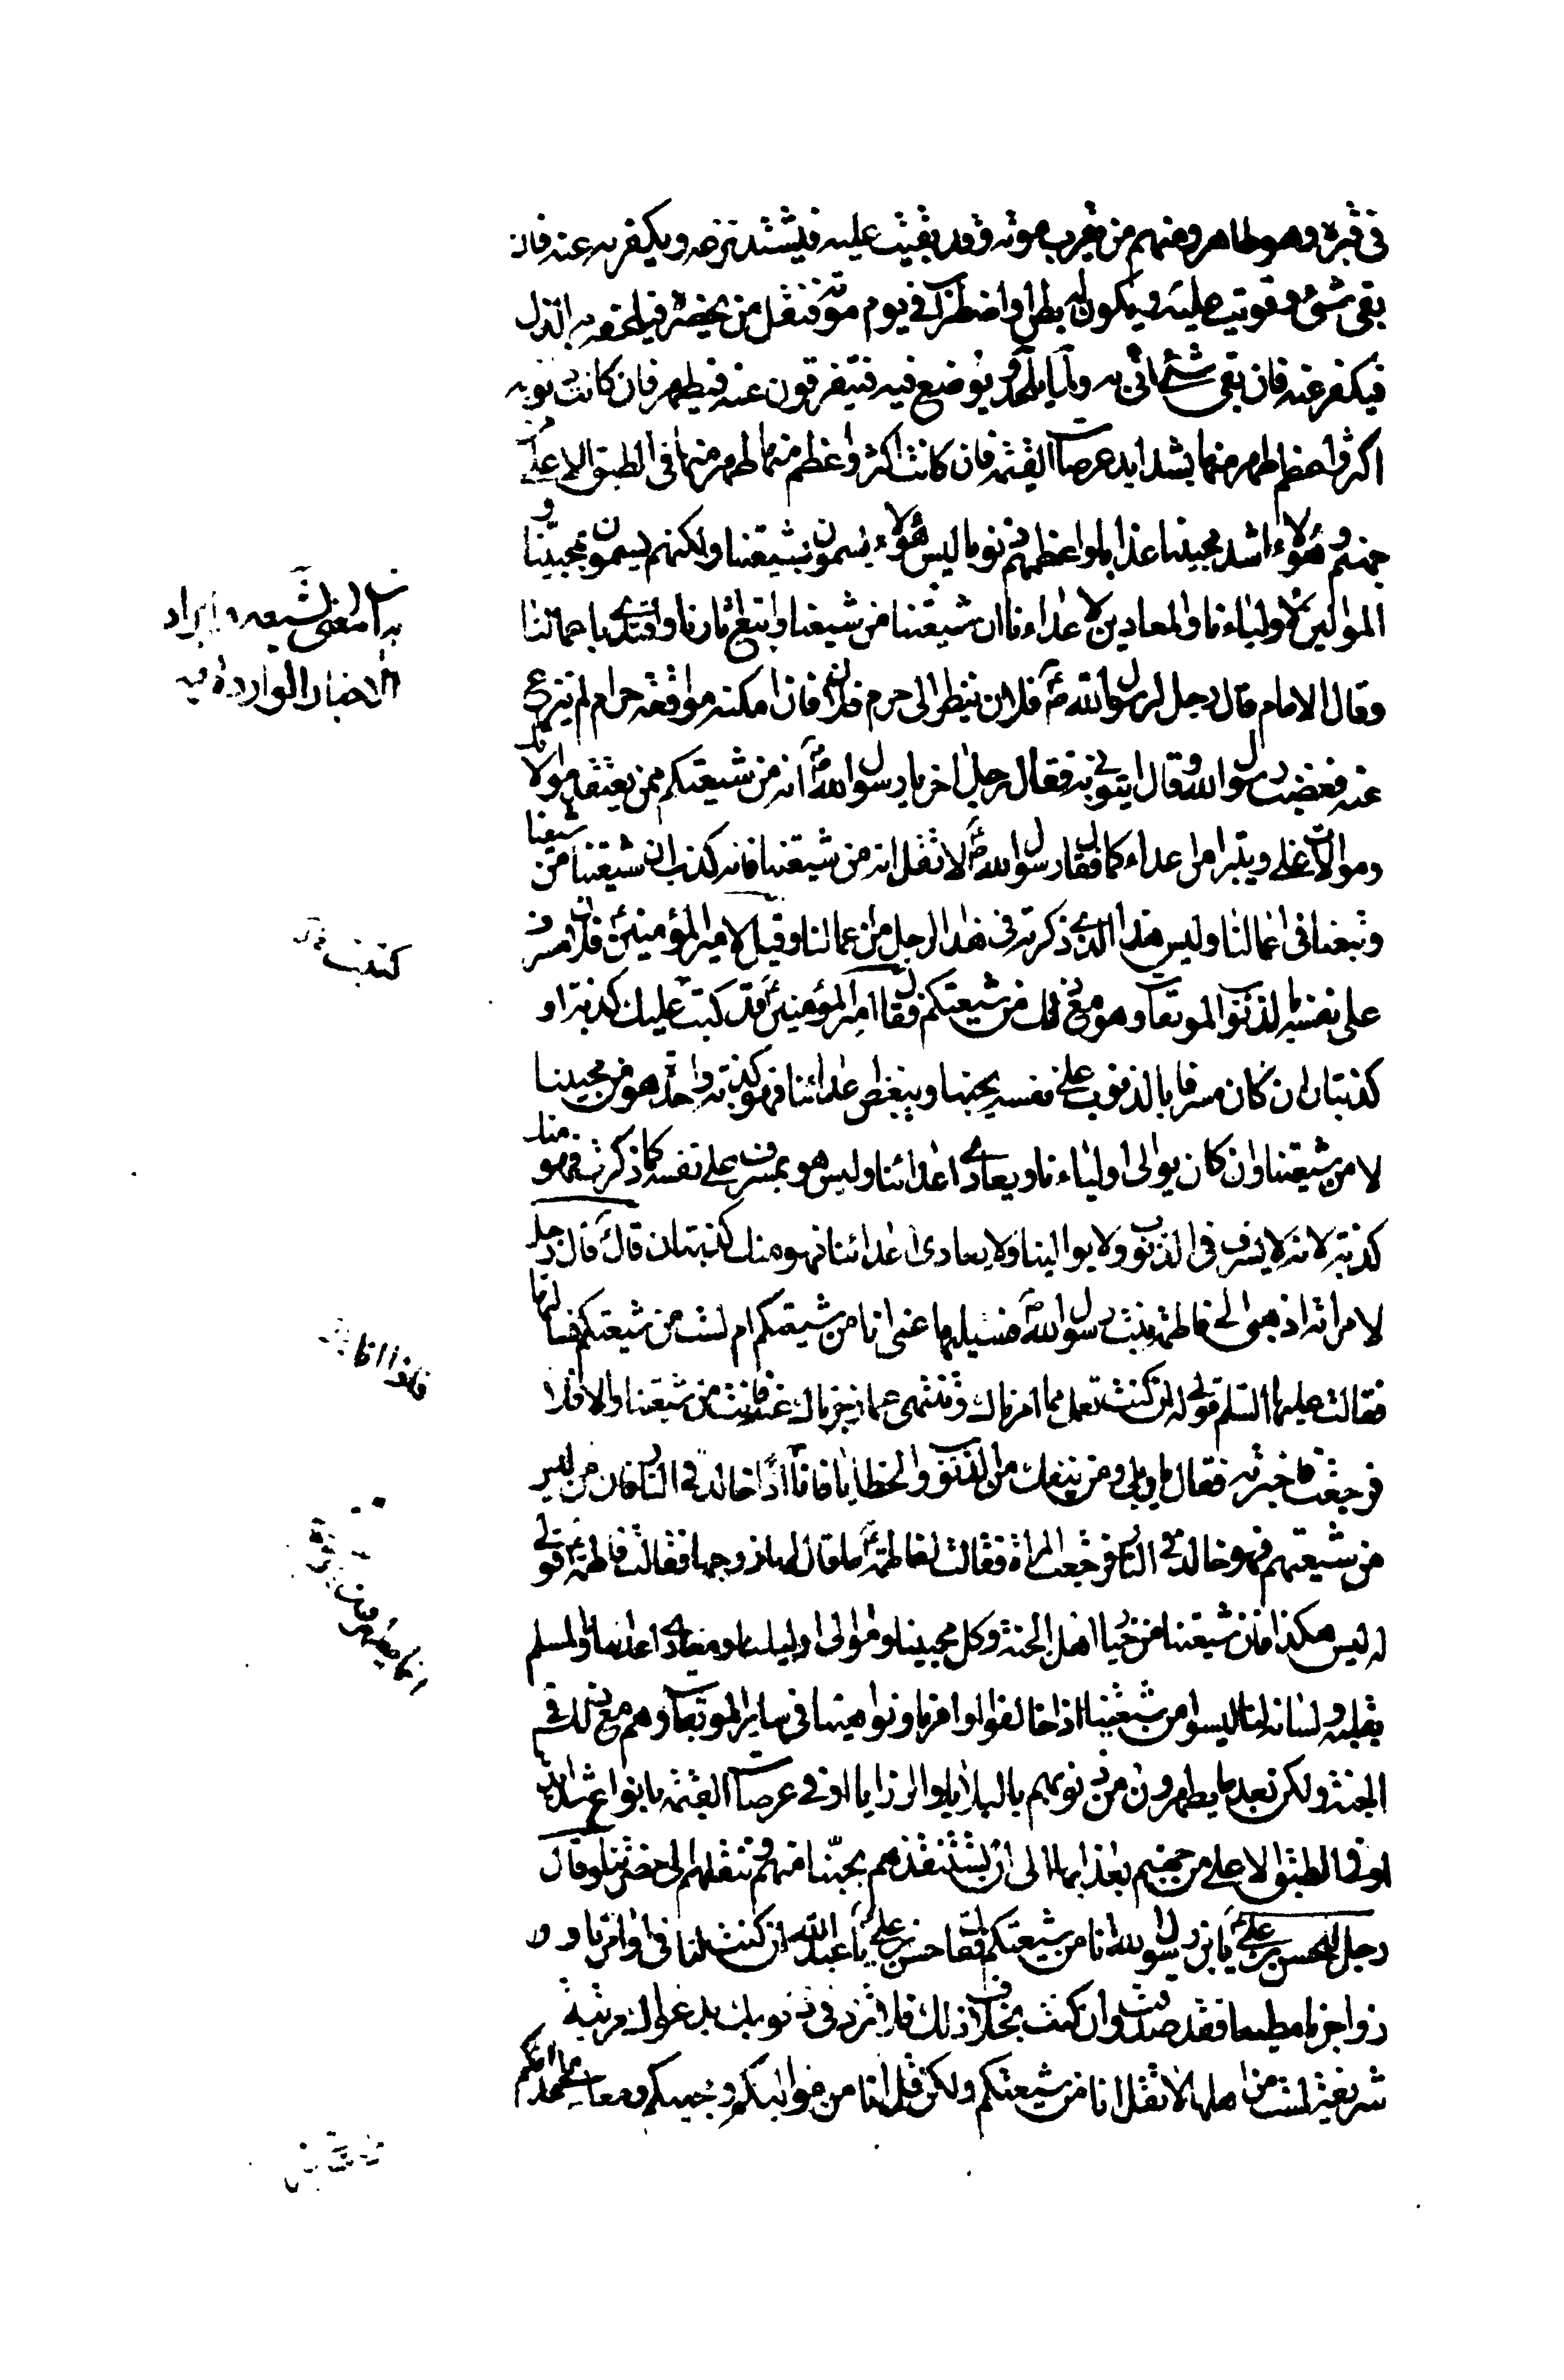 في قبره وهو طاهر ومنهم من يقرب موته وقد بقيت عليه فيشتد نزعه ويكفر به عنه فان
بقي شيء وقويت عليه ويكون له بطن او اضطراب في يوم موته فيقل من يحضره فيلحقه به الذل
فيكفر عنه فان بقي شيء اتي به ولما يلحد ويوضع فيه فيتفرقون عنه فيطهر فان كانت ذنوبه
اكثر واعظم طهر منها بشدايد عرصات القيمة فان كانت اكثر واعظم منها طهر منها في الطبق الاعلى من
جهنم وهؤلاء اشد محبينا عذابا واعظمهم ذنوبا ليس هؤلاء يسمون بشيعتنا ولكنهم يسمون بمحبينا و
الموالين لاولياءنا والمعادين لاعداءنا ان شيعتنا من شيعنا واتبع اثارنا واقتدى باعمالنا
وقال الامام قال رجل لرسول الله ص فلان ينظر الى حرم فلان فان امكنه مواقعة حرام لم ينزع
عنه فغضب رسول الله وقال ايتوني به فقال رجل اخر يا رسول الله ص انه من شيعتكم ممن يعتقد موالاتك
وموالات علي ويتبرا من اعداء كما فقال رسول الله ص لا تقل انه من شيعتنا فانه كذب ان شيعتنا من شيعنا
وتبعنا في اعمالنا وليس هذا الذي ذكرته في هذا الرجل من عمالنا وقيل لامير المؤمنين ع فلان مسرف
على نفسه بالذنوب الموبقات وهو مع ذلك من شيعتكم فقال امير المؤمنين ع قد كتبت عليك كذبة او
كذبتان ان كان مسرفا بالذنوب على نفسه يحبنا ويبغض اعدائنا فهو كذبة واحدة هو من محبينا
لا من شيعتنا وان كان يوالي اولياءنا ويعادي اعدائنا وليس هو بمسرف على نفسه كما ذكرت فهو منك
كذبة لانه لا يسرف في الذنوب ولا يوالينا ولا يعادي اعدائنا فهو منك كذبتان قال ع قال رجل
لامراته اذهبي الى فاطمة بنت رسول الله ص فسيليها عني انا من شيعتكم ام لست من شيعتكم فسالتها
فقالت عليها السلم قولي له ان كنت تعمل بما امرناك وتنتهي عما زجرناك عنه فانت من شيعتنا والا فلا
فرجعت فاخبرته فقال يا ويلي ومن ينفك من الذنوب والخطايا فانا اذا خالد في النار فان من ليس
من شيعتهم فهو خالد في النار فرجعت المراة فقالت لفاطمة ع ما قال لها زوجها فقالت فاطمة ع قولي
له ليس هكذا فان شيعتنا من خيار اهل الجنة وكل محبينا وموالي اوليائنا ومعادي اعدائنا والمسلم
بقلبه ولسانه لنا ليسوا من شيعتنا اذا خالفوا اوامرنا ونواهينا في ساير الموبقات وهم مع ذلك في
الجنة ولكن بعد ما يطهرون من ذنوبهم بالبلايا والرزايا او في عرصات القيمة بانواع شدائدها
او في الطبق الاعلى من جهنم بعذابها الى ان نستنقذهم بحبنا منهم وننقلهم الى حضرتنا وقال
رجل للحسن بن علي ع يا بن رسول الله انا من شيعتكم فقال حسن بن علي ع يا عبد الله ان كنت لنا في اوامرنا و
زواجرنا مطيعا فقد صدقت وان كنت بخلاف ذلك فلا تزد في ذنوبك بدعواك مرتبة
شريفة لست من اهلها لا تقل انا من شيعتكم ولكن قل انا من مواليكم ومحبيكم ومعادي اعدائكم
بيان معنى الشيعه وايراد
الاخبار الواردة فيه